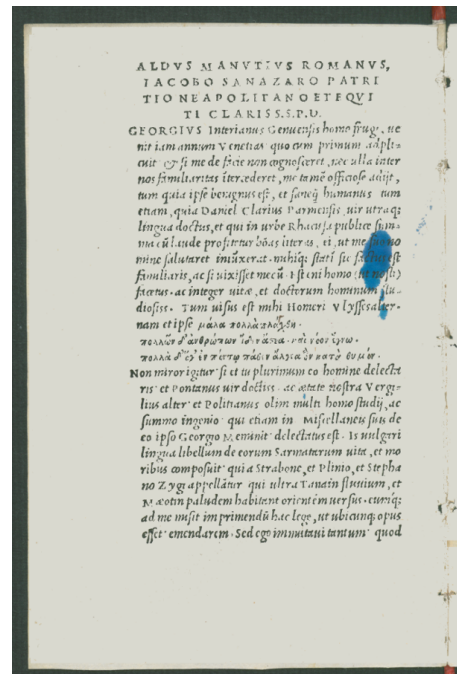 ALDVS MANVTIVS ROMANVS,
IACOBO SANAZARO PATRI
TIO NEAPOLITANO ET EQVI
TI CLARISS. S. P. D.
GEORGIVS Interianus Genuensis homo frugi, ue
nit iam annum Venetias quo cum primum adpli⸗
cuit & si me de facie non cognosceret, nec ulla inter
nos familiaritas itercederet, me tamē officiose adijt,
tum quia ipse benignus est, et sanéq; humanus tum
etiam, quia Daniel Clarius Parmensis uir utraq;
lingua doctus, et qui in urbe Rhacusa publice sum⸗
ma cū laude profitetur bōas literas, ei, ut me suo no
mine salutaret iniūxerat. mihiq; stati sic factus est
familiaris, ac si uixisset mecū. Est eni homo (ut nosti)
facetus. ac integer uitæ, et doctorum hominum stu⸗
diosiss. Tum uisus est mihi Homeri Vlysses alter.
nam et ipse μάλα πολλὰ πλάγχθη.
πολλῶν δ᾽ ἀνθρώπων ἴδεν ἄστεα. καὶ νόον ἔγνω.
πολλὰ δ᾽ ὅγ᾽ ἐν πόντῳ πάθεν ἄλγεα ὃν κατὰ θυμόν.
Non miror igitur si et tu plurimum eo homine delecta
ris. et Pontanus uir doctiss. ac ætate nostra Vergi⸗
lius alter. et Politianus olim multi homo studij, ac
summo ingenio qui etiam in Miscellaneis suis de
eo ipso Georgio Meminit delectatus est. Is uulgari
lingua libellum de eorum Sarmatarum uita, et mo
ribus composuit qui a Strabone, et Plinio, et Stepha
no Zygi appellātur qui ultra Tanain fluuium, et
Mæotin paludem habitant orientem uersus. eumq;
ad me misit imprimendū hac lege, ut ubicunq; opus
esset emendarem. Sed ego immutaui tantum quod